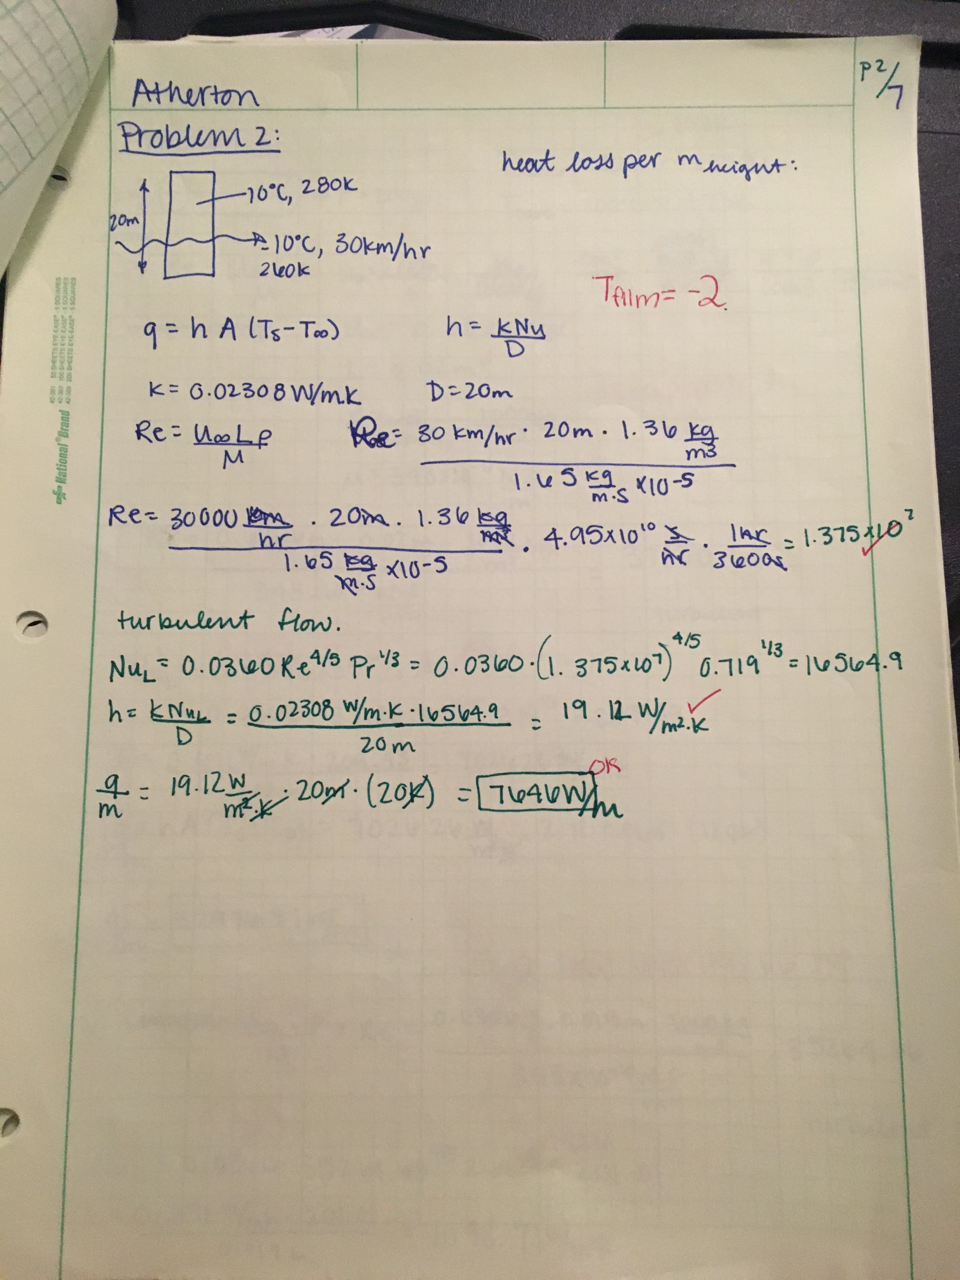 p2/7
Atherton
Problem 2:
heat loss per m height:
10°C, 280K
20m
-10°C, 30km/hr
260K
Tfilm = -2
q = h A (Ts - T∞) h = kNu/D
K = 0.02308 W/mK D = 20m
Re = U∞Lρ/M Re = 30 km/hr · 20m · 1.36 kg/m3 / 1.65 kg/m·s x10-5
Re = 30000 m/hr · 20m · 1.36 kg/m3 / 1.65 kg/m·s x10-5 · 4.95x10^10 s/hr · 1hr/3600s = 1.375x10^7
turbulent flow.
NuL = 0.0360 Re^4/5 Pr^1/3 = 0.0360 · (1.375x10^7)^4/5 0.719^1/3 = 16564.9
h = kNuL/D = 0.02308 W/m·K · 16564.9 / 20m = 19.12 W/m²·K
OK
q/m = 19.12 W/m²·K · 20m · (20K) = 7646W/m
National Brand